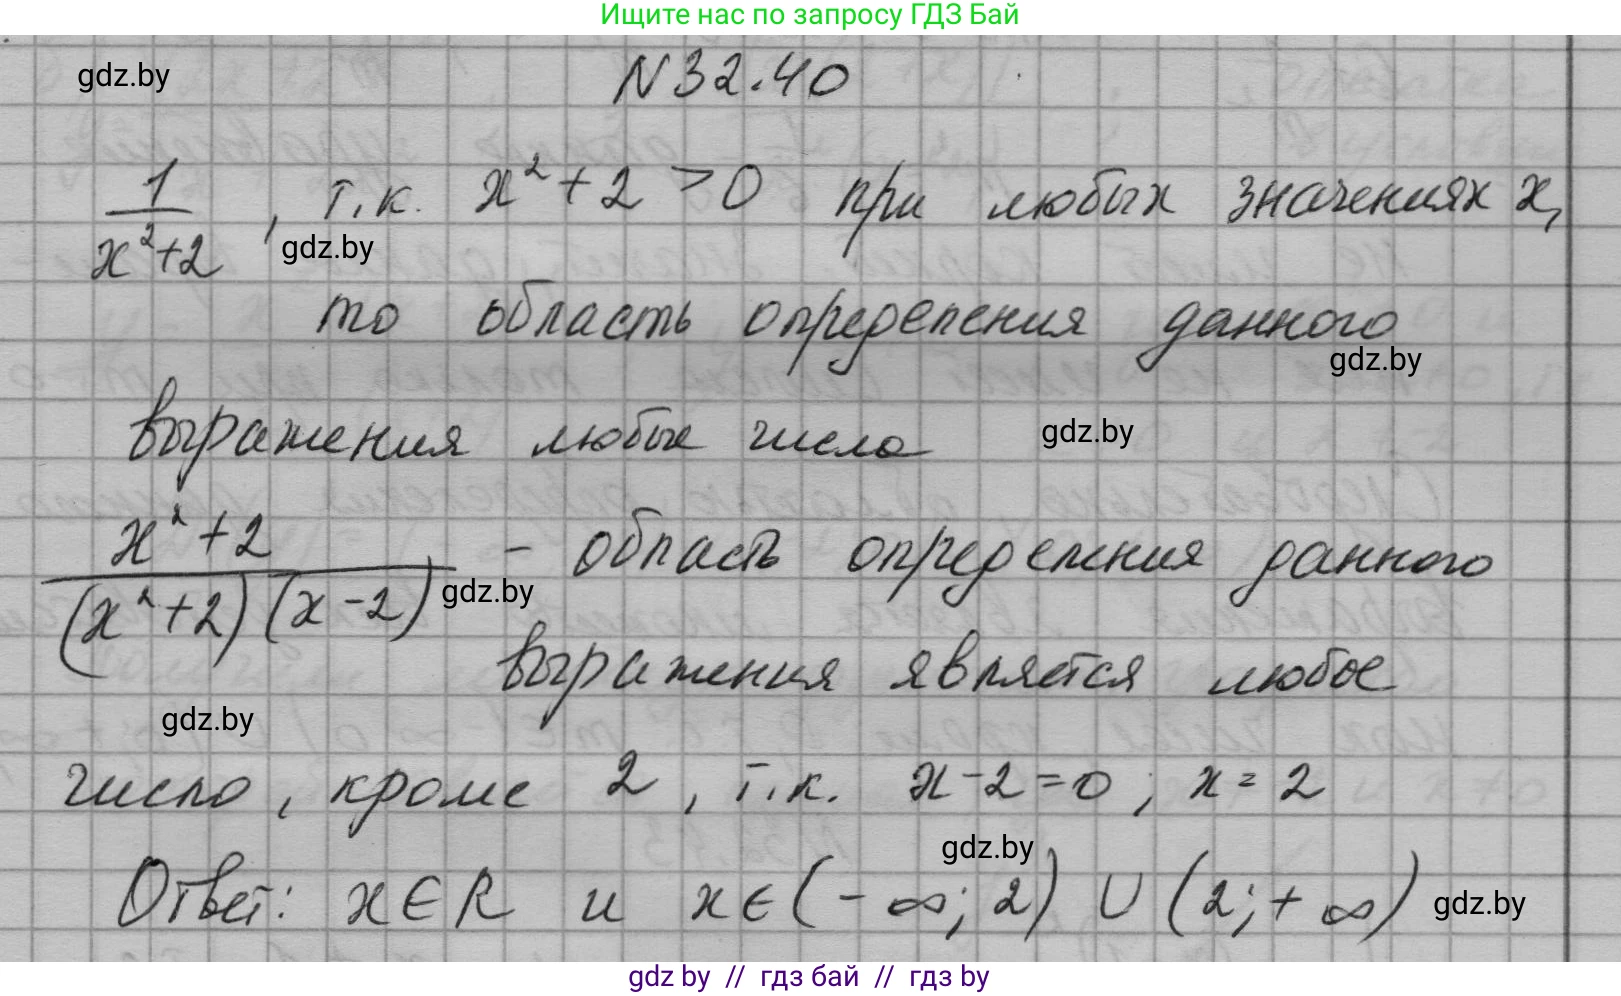 Ищите нас по запросу ГДЗ Бай
gdz.by
N 32.40
1/(x²+2), т.к. x²+2 > 0 при любых значениях x,
gdz.by
то область определения данного
gdz.by
выражения любые числа
gdz.by
(x²+2)/((x²+2)(x-2)) - область определения данного
gdz.by
выражения является любое
gdz.by
число, кроме 2, т.к. x-2=0; x=2
gdz.by
Ответ: x∈R и x∈(-∞; 2) ∪ (2; +∞)
gdz.by
gdz by // гдз бай // гдз by